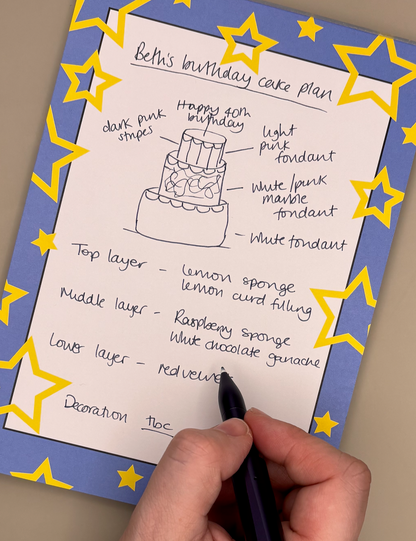 Beth's birthday cake plan
Happy 40th
birthday
dark pink
stripes
light
pink
fondant
white/pink
marble
fondant
white fondant
Top layer - lemon sponge
lemon curd filling
Middle layer - Raspberry sponge
White chocolate ganache
Lower layer - red velvet
Decoration tbc